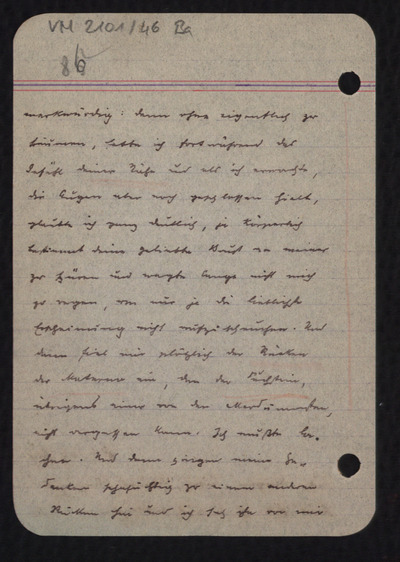 VM 2101/46 Ba
86
merkwürdig: denn ohne eigentlich zu
träumen, hatte ich fortwährend das
Gefühl deiner Nähe und als ich erwachte,
die Augen aber noch geschlossen hielt,
glaubte ich ganz deutlich, ja körperlich
bestimmt deine geliebte Brust an meiner
zu spüren und wagte lange nicht mich
zu regen, um nur ja die lieblichste
Erscheinung nicht aufzuscheuchen. Und
dann fiel mir plötzlich der Rücken
der ein, den der
übrigens einer von den
nicht vergessen kann. Ich mußte la-
chen. Und dann gingen meine Ge-
danken sehnsüchtig zu einem anderen
Rücken hin und ich sah ihn vor mir